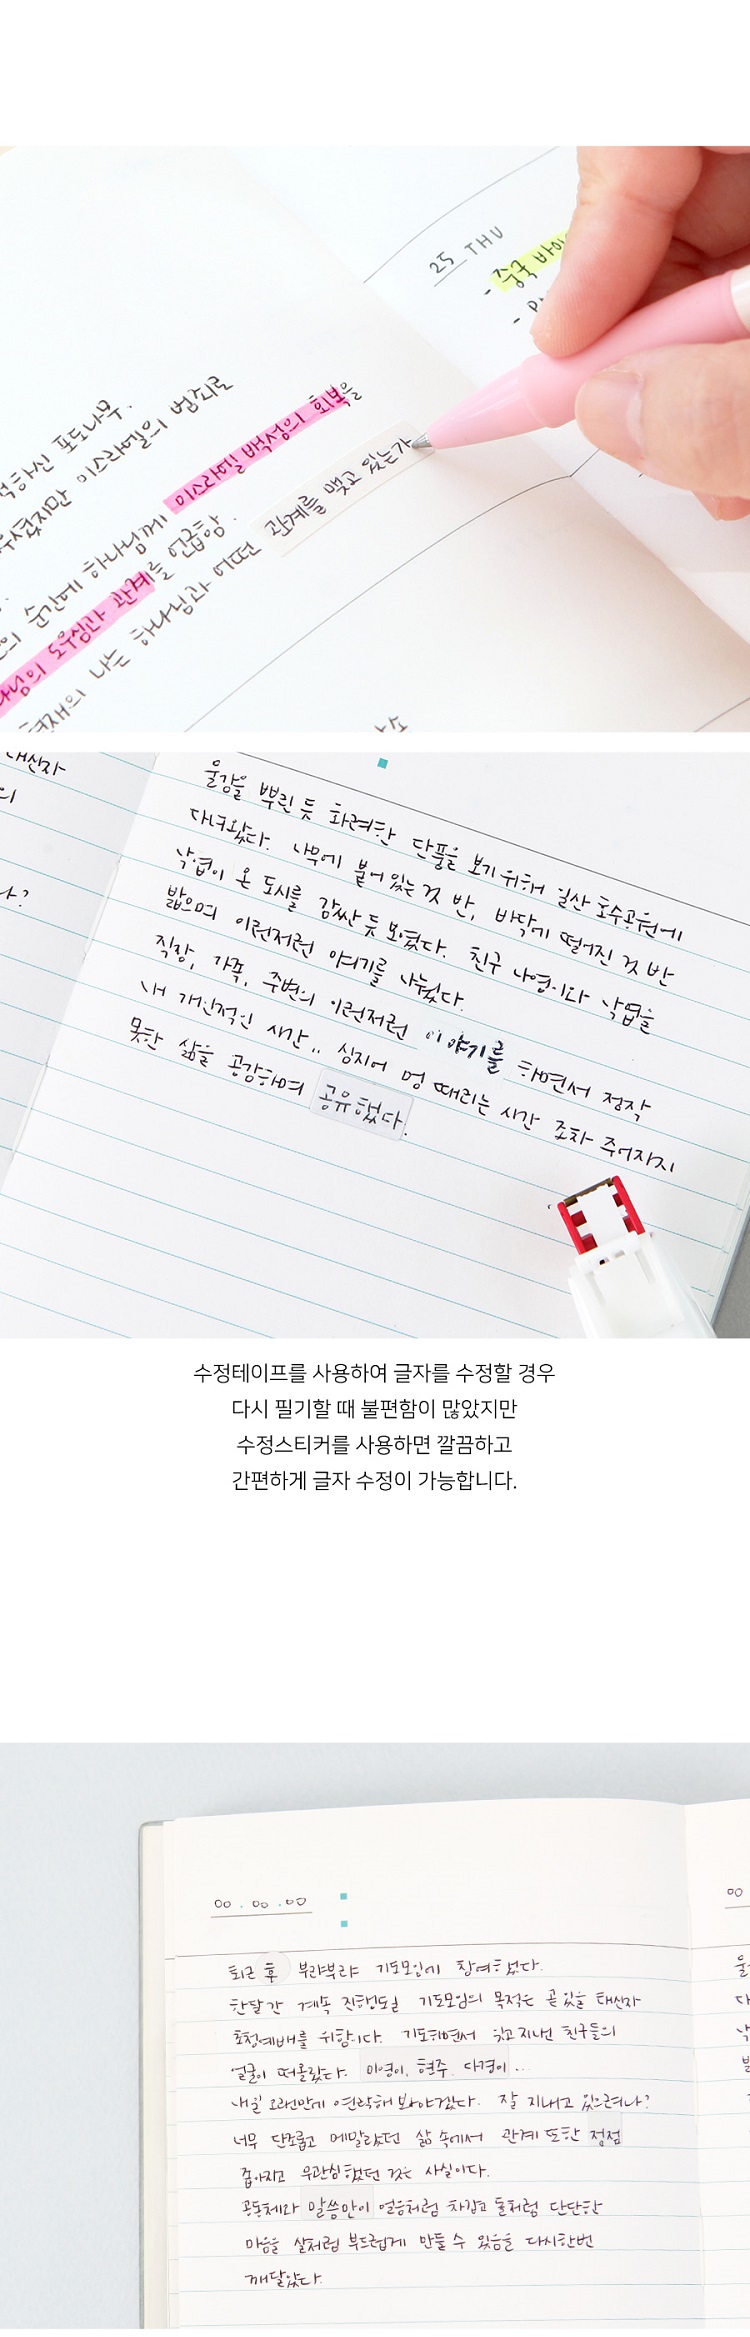 25 THU
- 중국
-
적하신 포도나무.
우셨지만 이스라엘의 범죄로
순간에 하나님께 이스라엘 백성의 회복을
나님의 도우심과 관계를 언급함.
현재의 나는 하나님과 어떤 관계를 맺고 있는가
대신자
의
나?
물감을 뿌린 듯 화려한 단풍을 보기 위해 일산 호수공원에
다녀왔다. 나무에 붙어 있는 것 반, 바닥에 떨어진 것 반
낙엽이 온 도시를 감싼 듯 보였다. 친구 나영이와 낙엽을
밟으며 이런저런 이야기를 나눴다.
직장, 가족, 주변의 이런저런 이야기를 하면서 정작
내 개인적인 시간.. 심지어 멍 때리는 시간 조차 주어지지
못한 삶을 공감하며 공유했다.
수정테이프를 사용하여 글자를 수정할 경우
다시 필기할 때 불편함이 많았지만
수정스티커를 사용하면 깔끔하고
간편하게 글자 수정이 가능합니다.
00 . 00 . 00
00
퇴근 후 부랴부랴 기도모임에 참여했다.
한달간 계속 진행되는 기도모임의 목적은 곧 있을 태신자
초청예배를 위함이다. 기도하면서 잊고 지낸 친구들의
얼굴이 떠올랐다. 미영이, 현주, 다경이...
내일 오랜만에 연락해 봐야겠다. 잘 지내고 있으려나?
너무 단조롭고 메말랐던 삶 속에서 관계 또한 점점
좁아지고 무관심했던 것은 사실이다.
공동체와 말씀만이 얼음처럼 차갑고 돌처럼 단단한
마음을 살처럼 부드럽게 만들 수 있음을 다시한번
깨달았다.